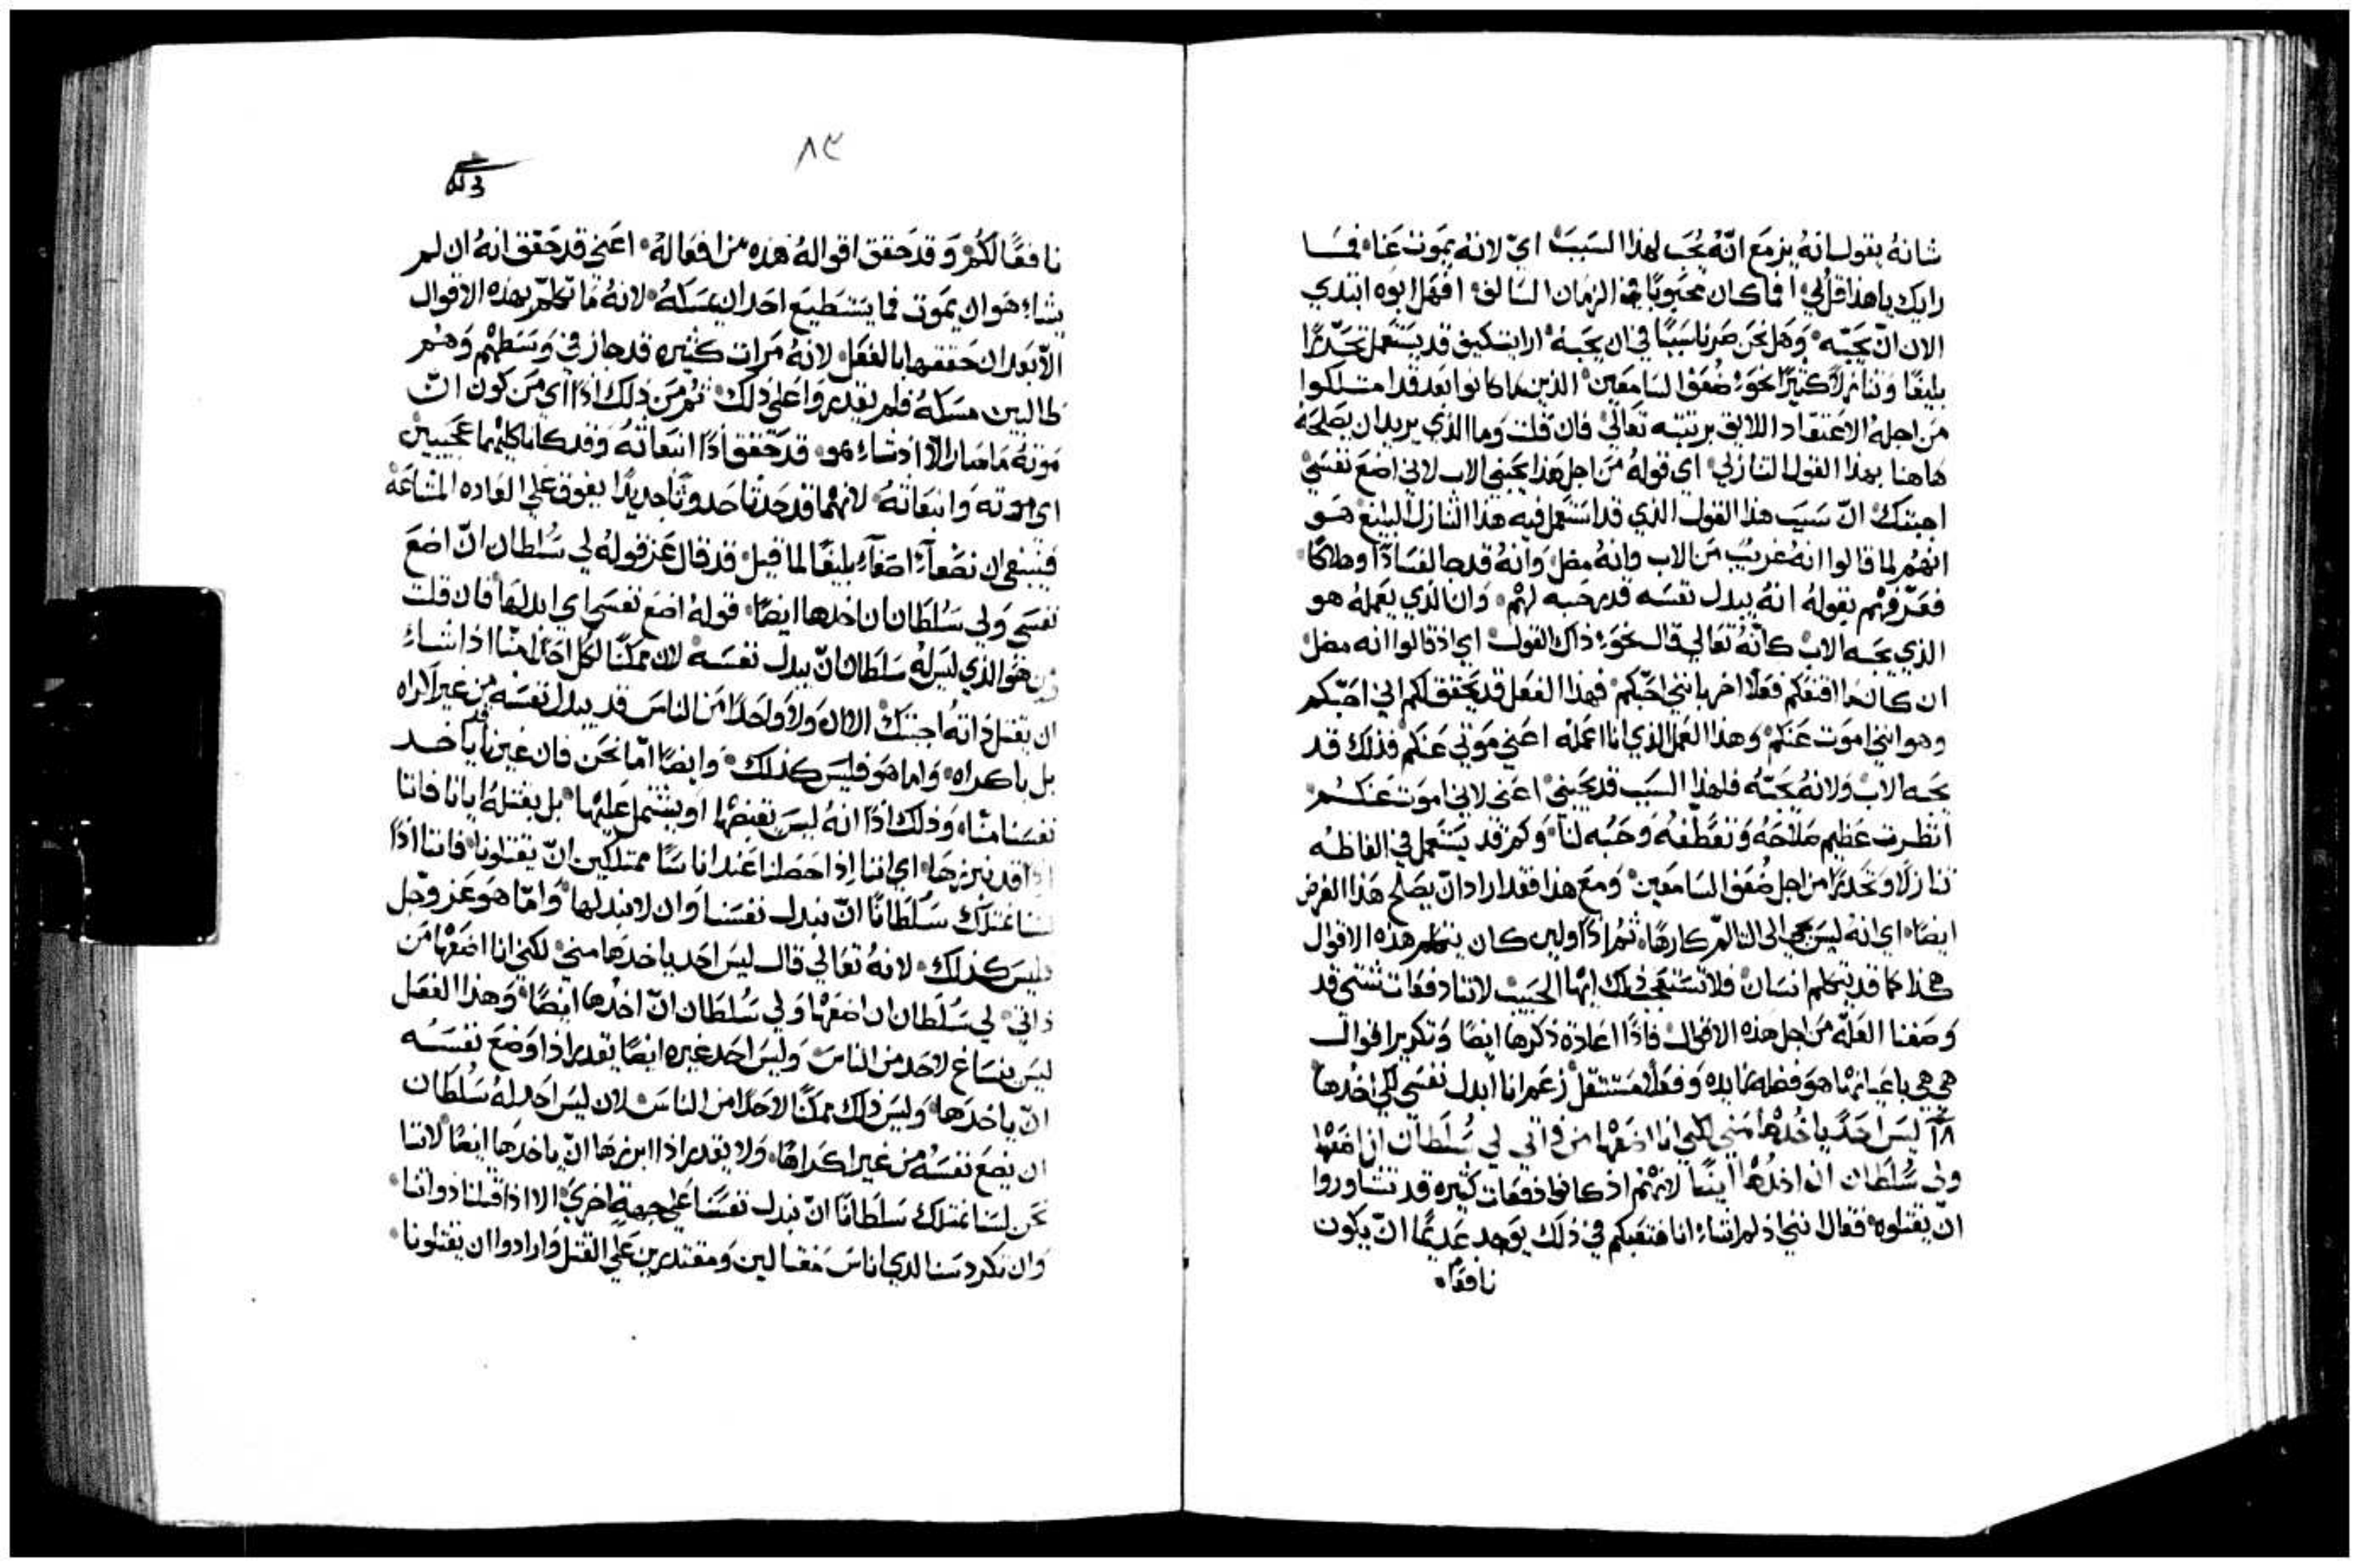 شانهُ يقول انهُ يزمع انّهُ يُحَب لهذا السَبَب اي لانهُ يموت عنا فما
رايك يا هذا قل لي افما كان محبوبًا في الزمان السالف افهل ابوه ابتدي
الان انّ يحَبّه وَهَل نحن صَرنا سَببًا في ان يحَبهُ ارايت كيف قد يستعمل تحَدّرًا
بليغًا وتنازلاً كثيرًا نحوَ ضُعَف السامعين الذين ما كانوا بعد قد امتلكوا
من اجلهُ الاعتقاد اللايق برتبته تعالي فان قلت وما الذي يريد ان يصَلحَهُ
هاهنا بهذا القول التنازلي اي قولهُ من اجل هَذا يحَبني الاب لاني اضع نفسَي
اجبتك انّ سَبَب هذا القول الذي قد استَعمل فيه هذا التنازل البليغ هو
انهُم لما قالوا انه غريبٌ من الاب وانهُ مضل وَانهُ قد صا لفسَادًا وهلاكًا
فعَرّفهُم بقولهُ انهُ يبدل نفسَه قد حَبه لهُم وان الذي يعَملهُ هو
الذي يحَبه الاب كانّهُ تعالي قال نحوَ ذاك القول اي اذ قالوا انه مضل
ان كان ما اقنعَكم فعَلاً اخر بانني احَبّكم فهذا الفعَل قد يحَقق لكم اني احَبّكم
وهو انني اموت عنكم وَهذا العَمل الذي انا اعمَله اعني موَتي عَنكم فذلك قد
يحَبه الاب وَلانهُ يحَبّه فلهذا السَبَب قد يحَبني اعَني لاني اموَت عَنكم
انظرت عَظيم صَلاحَهُ وَتعَطّفهُ وَحُبه لنا وكم قد يستَعمل في الفاظه
تنازلاً وتحَدرًا من اجل ضُعَف السامَعين وَمَع هذا فقد اراد انّ يصَلح هَذا الغرض
ايضًا اي انهُ ليس يجي الي التالمّ كارهًا ثمُ اذًا ولين كان يتكلم هذه الاقوال
هكذا كما قد يتكلم انسان فلا تسَتعَجب من ذلك ايُها الحَبيب لاننا دفعَات شتّي قد
وَصَفنا العَلّه من اجل هذه الاقوال فاذًا اعَادة ذكرها ايضًا وتكرير اقوال
هي هي باعَيانها هوَ فضله زايده وَفعَلاً مستثقل زعَم انا ابدل نفسَي لكي اخُدها
١٨ ليَس احَدٌ ياخُدهَا مني لكني انا اضعَها من ذاتي لي سُلطان ان اضعَها
ولي سُلطان ان اخُدهَا ايضًا لانهُم اذ كانوا دفعَات كثيره قد تشاوروا
انّ يقتلوه فقال انني اذ لم اشاء انا فتعَبكم في ذلك يوَجد عَديمًا انّ يكون
نافعًا
٨٣
نافعًا لكُم وَقد حَقق اقوالهُ هذه من افعَالهُ اعَني قد حَقق انهُ ان لم
يشاء هوَ ان يموَت فما يَستَطيع احَد ان يمسَكهُ لانهُ ما تكلمّ بهذه الاقوال
الاّ بعَد ان حَققها بالفعَل لانهُ مَرات كثيره قد جاز في وَسَطهُم وَهُم
طالبين مسَكهُ فلم يقدروَا علي ذلك ثمُ من ذلك اذًا اي من كون انّ
موَتهُ ما صار الاّ اذ شاء هو قد تحَقق اذًا انبعَاثهُ وَقد كانا كليهُما عَجيبين
اي موته وَانبعَاثهُ لانهُما قد حَدثا حَدوثًا جديدًا يفوق علي العَاده المشاعَة
فينبغي ان نصَغآء اصغآء بليغًا لما قيل قد قال عَن قوله لي سُلطان انّ اضعَ
نفسَي وَلي سَُلطان ان اخدها ايضًا قولهُ اضع نفسَي اي ابدلهَا فان قلت
من هَوَ الذي ليَس لهُ سَلطان انّ يبدل نفسَه لان ممكنًا لكُل احَدًا منّا اذا شاء
ان يقتل ذاته اجبتك الان وَلا وَاحَدًا من الناس قد يبدل نفسَه من غير اكراه
بل باكراه وَاما هوَ فليسَ كذلك وَايضًا امّا نحَن فان غيرنا قد ياخد
نفسَنا منّا وَذلك اذًا انهُ ليسَ يقبضها اوَ يشتمل عَليهُا بل بقتلهُ ايانا فاننا
اذًا قد نبرزهَا اي اننا اذا حَصَلنا عَند اناسًا ممتلكين انّ يقتلونا فاننا اذًا
لسَنا نمتلك سَلطانًا انّ نبدل نفسَنا وَان لا نبدلها وَامّا هوَ عَز وَجل
فليسَ كذلك لانهُ تعَالي قال ليسَ احَد ياخدهَا مني لكني انا اضعَها من
ذاتي لي سَُلطان ان اضعَها وَلي سُلطان انّ اخدها ايضًا وَهذا الفعَل
ليَس ينساغ لاحَد من الناس وَليسَ احَد غيره ايضًا يقدر اذا وَضع نفسَه
انّ ياخدهَا وَليسَ ذلك ممكنًا لاحَدًا من الناس لان ليسَ احَد لهُ سُلطان
ان يضع نفسَهُ من غير اكراهًا وَلا يقدر اذا ابرزها انّ ياخدهَا ايضًا لاننا
نحَن لسَنا نمتلك سَلطانًا انّ نبدل نفسَنا عَلي جهةٍ اخرَي الا اذا قتلنا ذواتنا
وَان تكردسَنا لدي اناسَ مَغتالين وَمقتدرين عَلي القتل وَارادوا ان يقتلونا